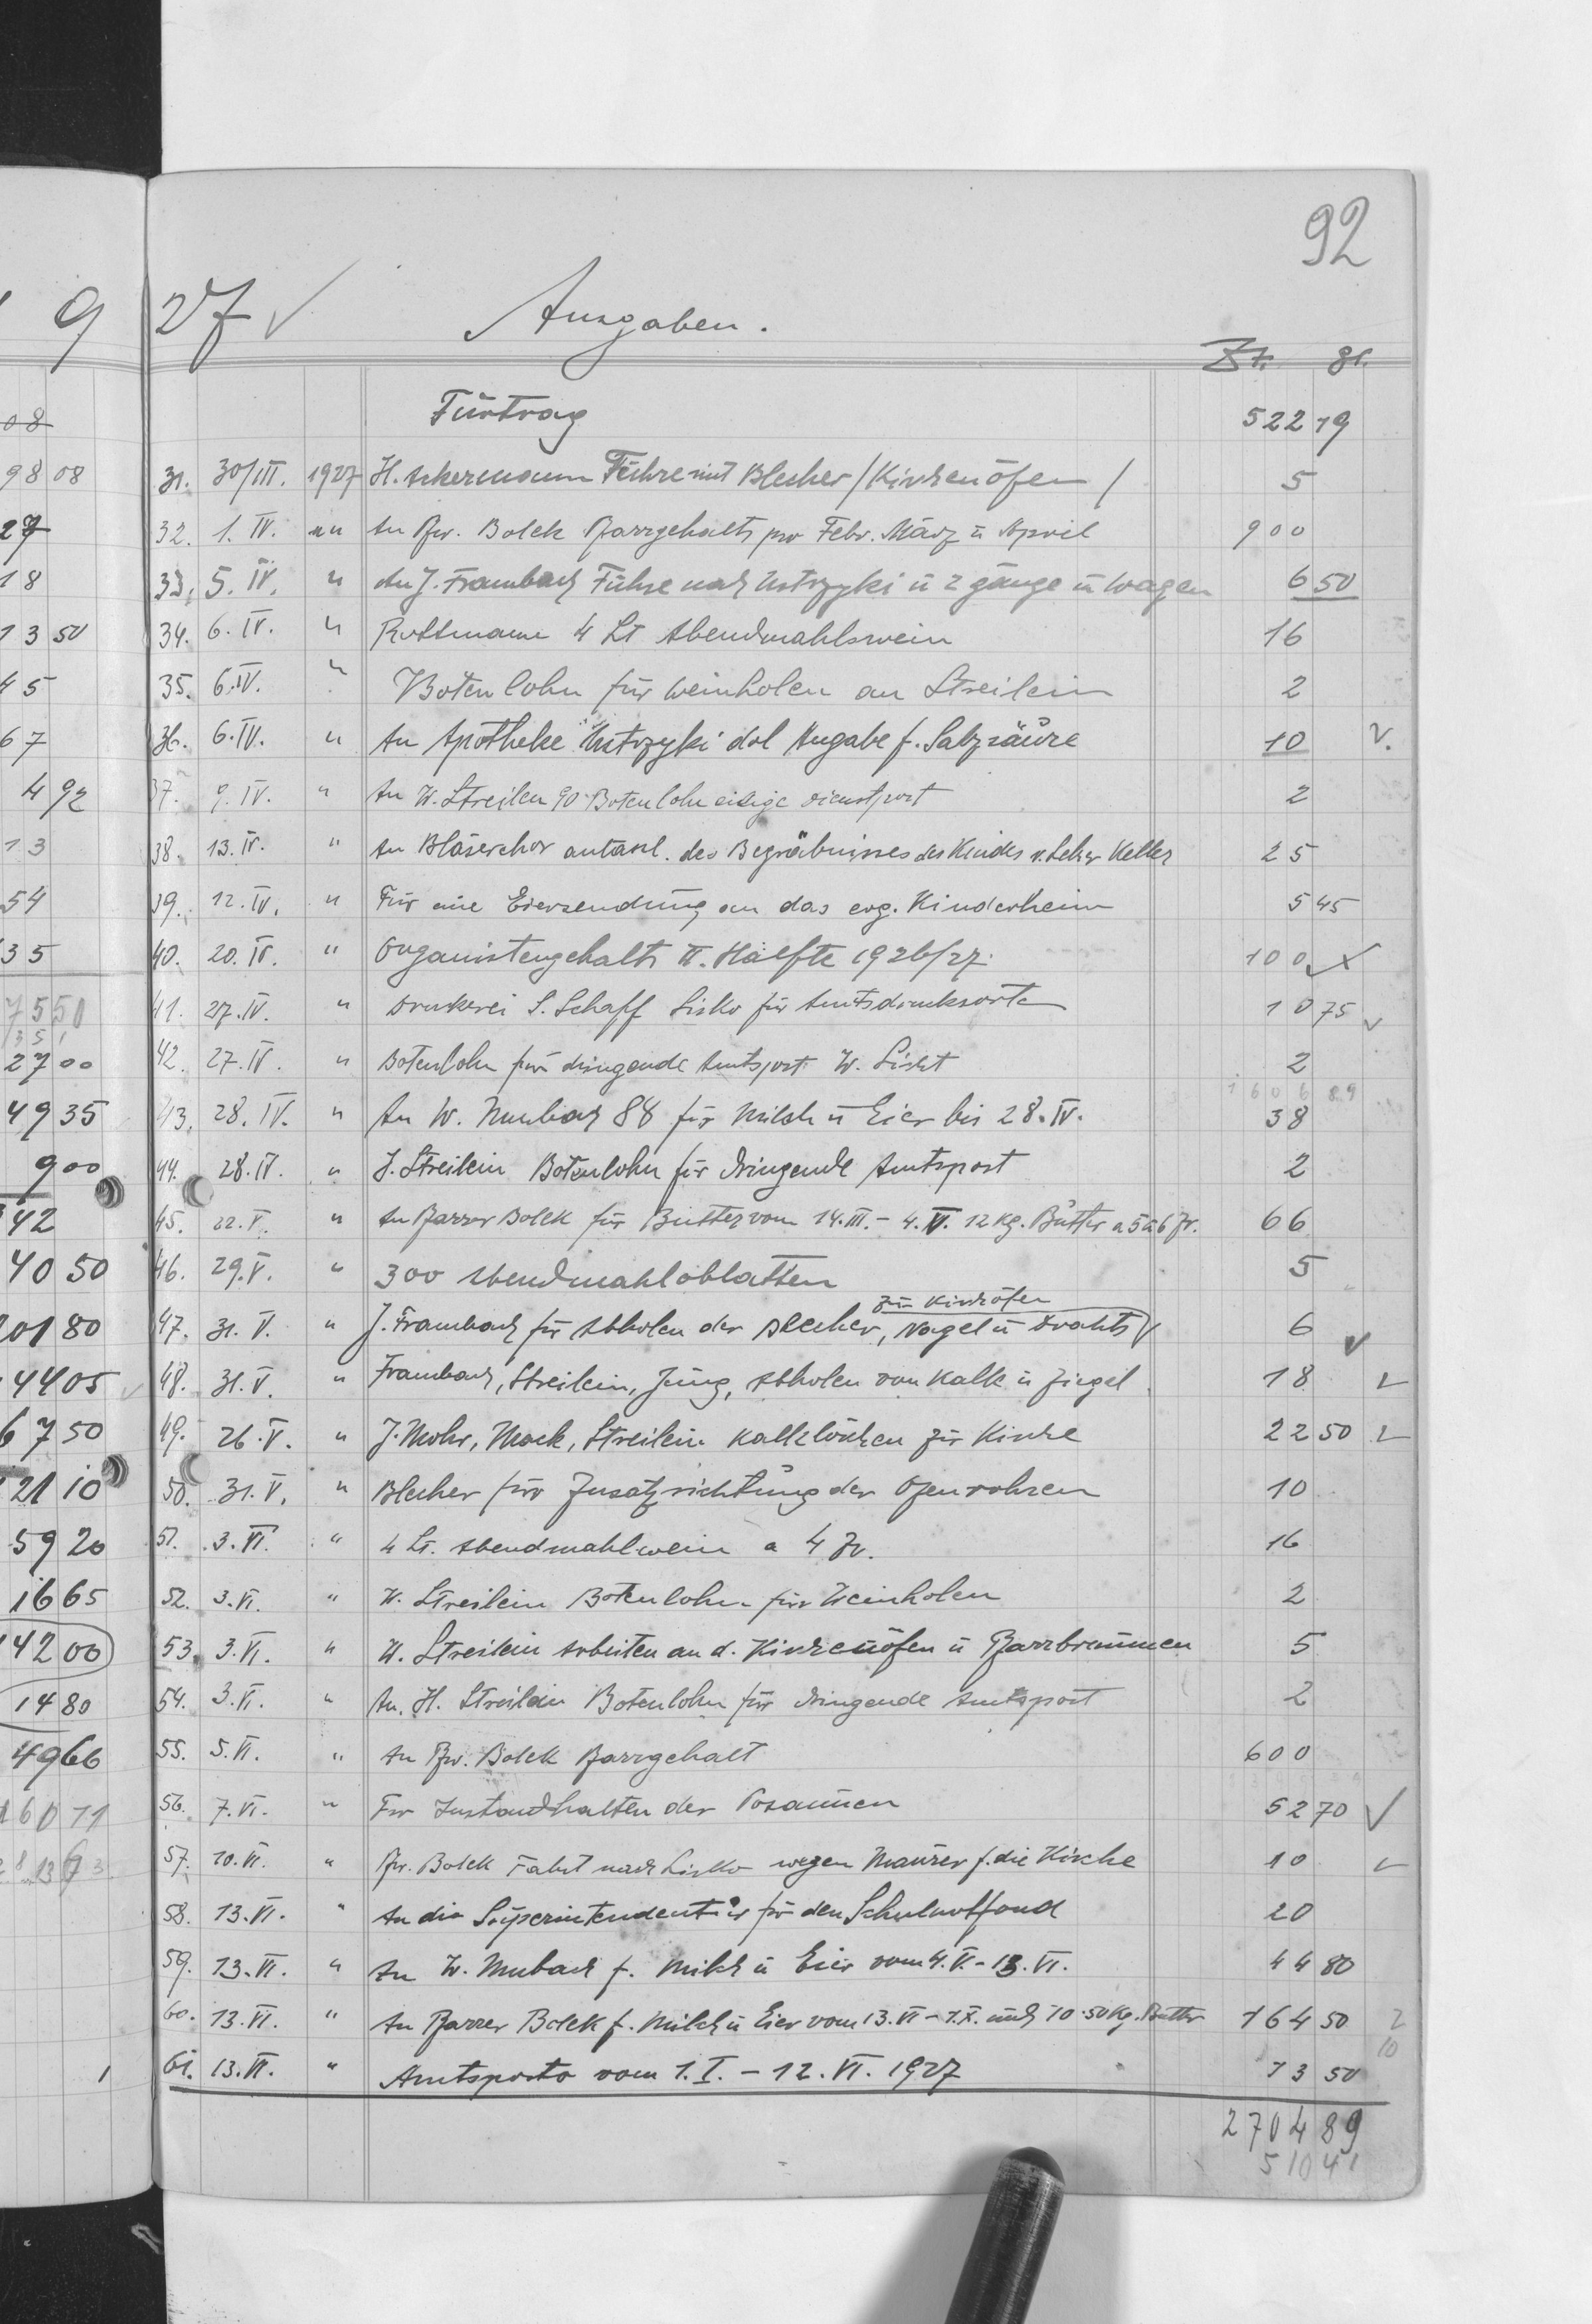 92
9 27 ✓ Ausgaben.
Zł. gr.
08 Fürtrag 522 19
98 08 31. 30/III. 1927 H. Ackermann Führe mit Blecher / Kirchenöfen / 5
27 32. 1. IV. " " An Pfr. Bolek Pfarrgehalts pro Febr. März u April 900
18 33. 5. IV. " An J. Frambach Führe nach Ustrzyki u 2 gänge u Wagen 6 50
13 50 34. 6. IV. " Rottmann 4 Lt Abendmahlswein 16
45 35. 6. IV. " Botenlohn für Weinholen an Streilein 2
67 36. 6. IV. " An Apotheke Ustrzyki dol Angabe f. Salzsäure 10 v.
4 92 37. 9. IV. " An W. Streilein 90 Botenlohn Dienstpost 2
13 38. 13. IV. " An Bläserchor des Begräbnisses des Kindes v. Lehrer Keller 25
54 39. 12. IV. " Für eine Eiersendung an das evg. Kinderheim 5 45
35 40. 20. IV. " Organistengehalts II. Hälfte 1926/27. 100
75 50 41. 27. IV. " Druckerei S. Schaff Lisko für Amtsdrucksorten 10 75 v
27 00 42. 27. IV. " Botenlohn für dringende Amtspost W. 2
1606 89
49 35 43. 28. IV. " An W. Mubach 88 für Milch u Eier bis 28. IV. 38
900 44. 28. IV. " J. Streilein Botenlohn für dringende Amtspost 2
42 45. 22. V. " An Pfarrer Bolek für Butter vom 14. III. - 4. V. 12 kg. Butter a 5 a 6 Zł. 66
40 50 46. 29. V. " 300 Abendmahloblatten 5
zu Kirchöfen
201 80 47. 31. V. " J. Frambach für Abholen der Blecher, Nagel u Drahts 6 v
44 05 48. 31. V. " Frambach, Streilein, Jung, Abholen von Kalk u Ziegel 18 v
67 50 49. 26. V. " J. Mohr, Mack, Streilein Kalklöschen zur Kirche 22 50 v
121 10 50. 31. V. " Blecher für Zusatzrichtung der Ofenrohren 10
59 20 51. 3. VI. " 4 Lt. Abendmahlwein a 4 Zł. 16
16 65 52. 3. VI. " W. Streilein Botenlohn für Weinholen 2
142 00 53. 3. VI. " W. Streilein Arbeiten an d. Kirchenöfen u Pfarrbrunnen 5
14 80 54. 3. VI. " An. H. Streilein Botenlohn für dringende Amtspost 2
49 66 55. 5. VI. " An Pfr. Bolek Pfarrgehalt 600
160 11 56. 7. VI. " Für Instandhalten der Posaunen 52 70 ✓
57. 10. VI. " Pfr. Bolek Fahrt nach Lisko wegen Maurer f. die Kirche 10 v
58. 13. VI. " An die Superintendentur für den Schulnotfond 20
59. 13. VI. " An W. Mubach f. Milch u Eier vom 4. V. - 13. VI. 44 80
60. 13. VI. " An Pfarrer Bolek f. Milch u Eier vom 13. VI - 1. X. und 10·50 Kg. Butter 164 50
61. 13. VI. " Amtsporto vom 1. I. - 12. VI. 1927 13 50
2704 89
510 41